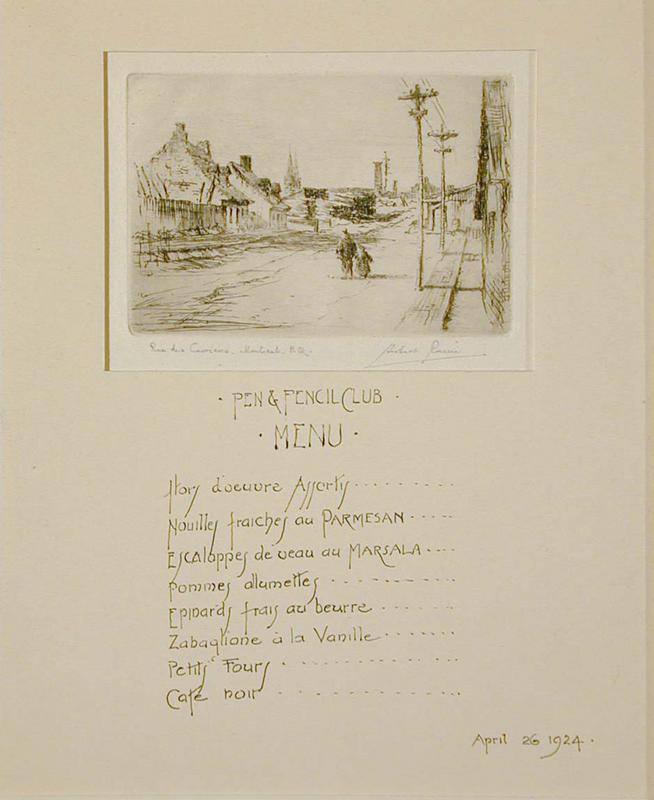 Rue des Carrieres. Montreal. P.Q.
· PEN & PENCIL CLUB ·
· MENU ·
Hors d'oeuvre Assortis
Nouilles fraiches au PARMESAN
Escaloppes de veau au MARSALA
Pommes allumettes
Epinards frais au beurre
Zabaglione à la Vanille
Petits Fours
Café noir
April 26 1924.